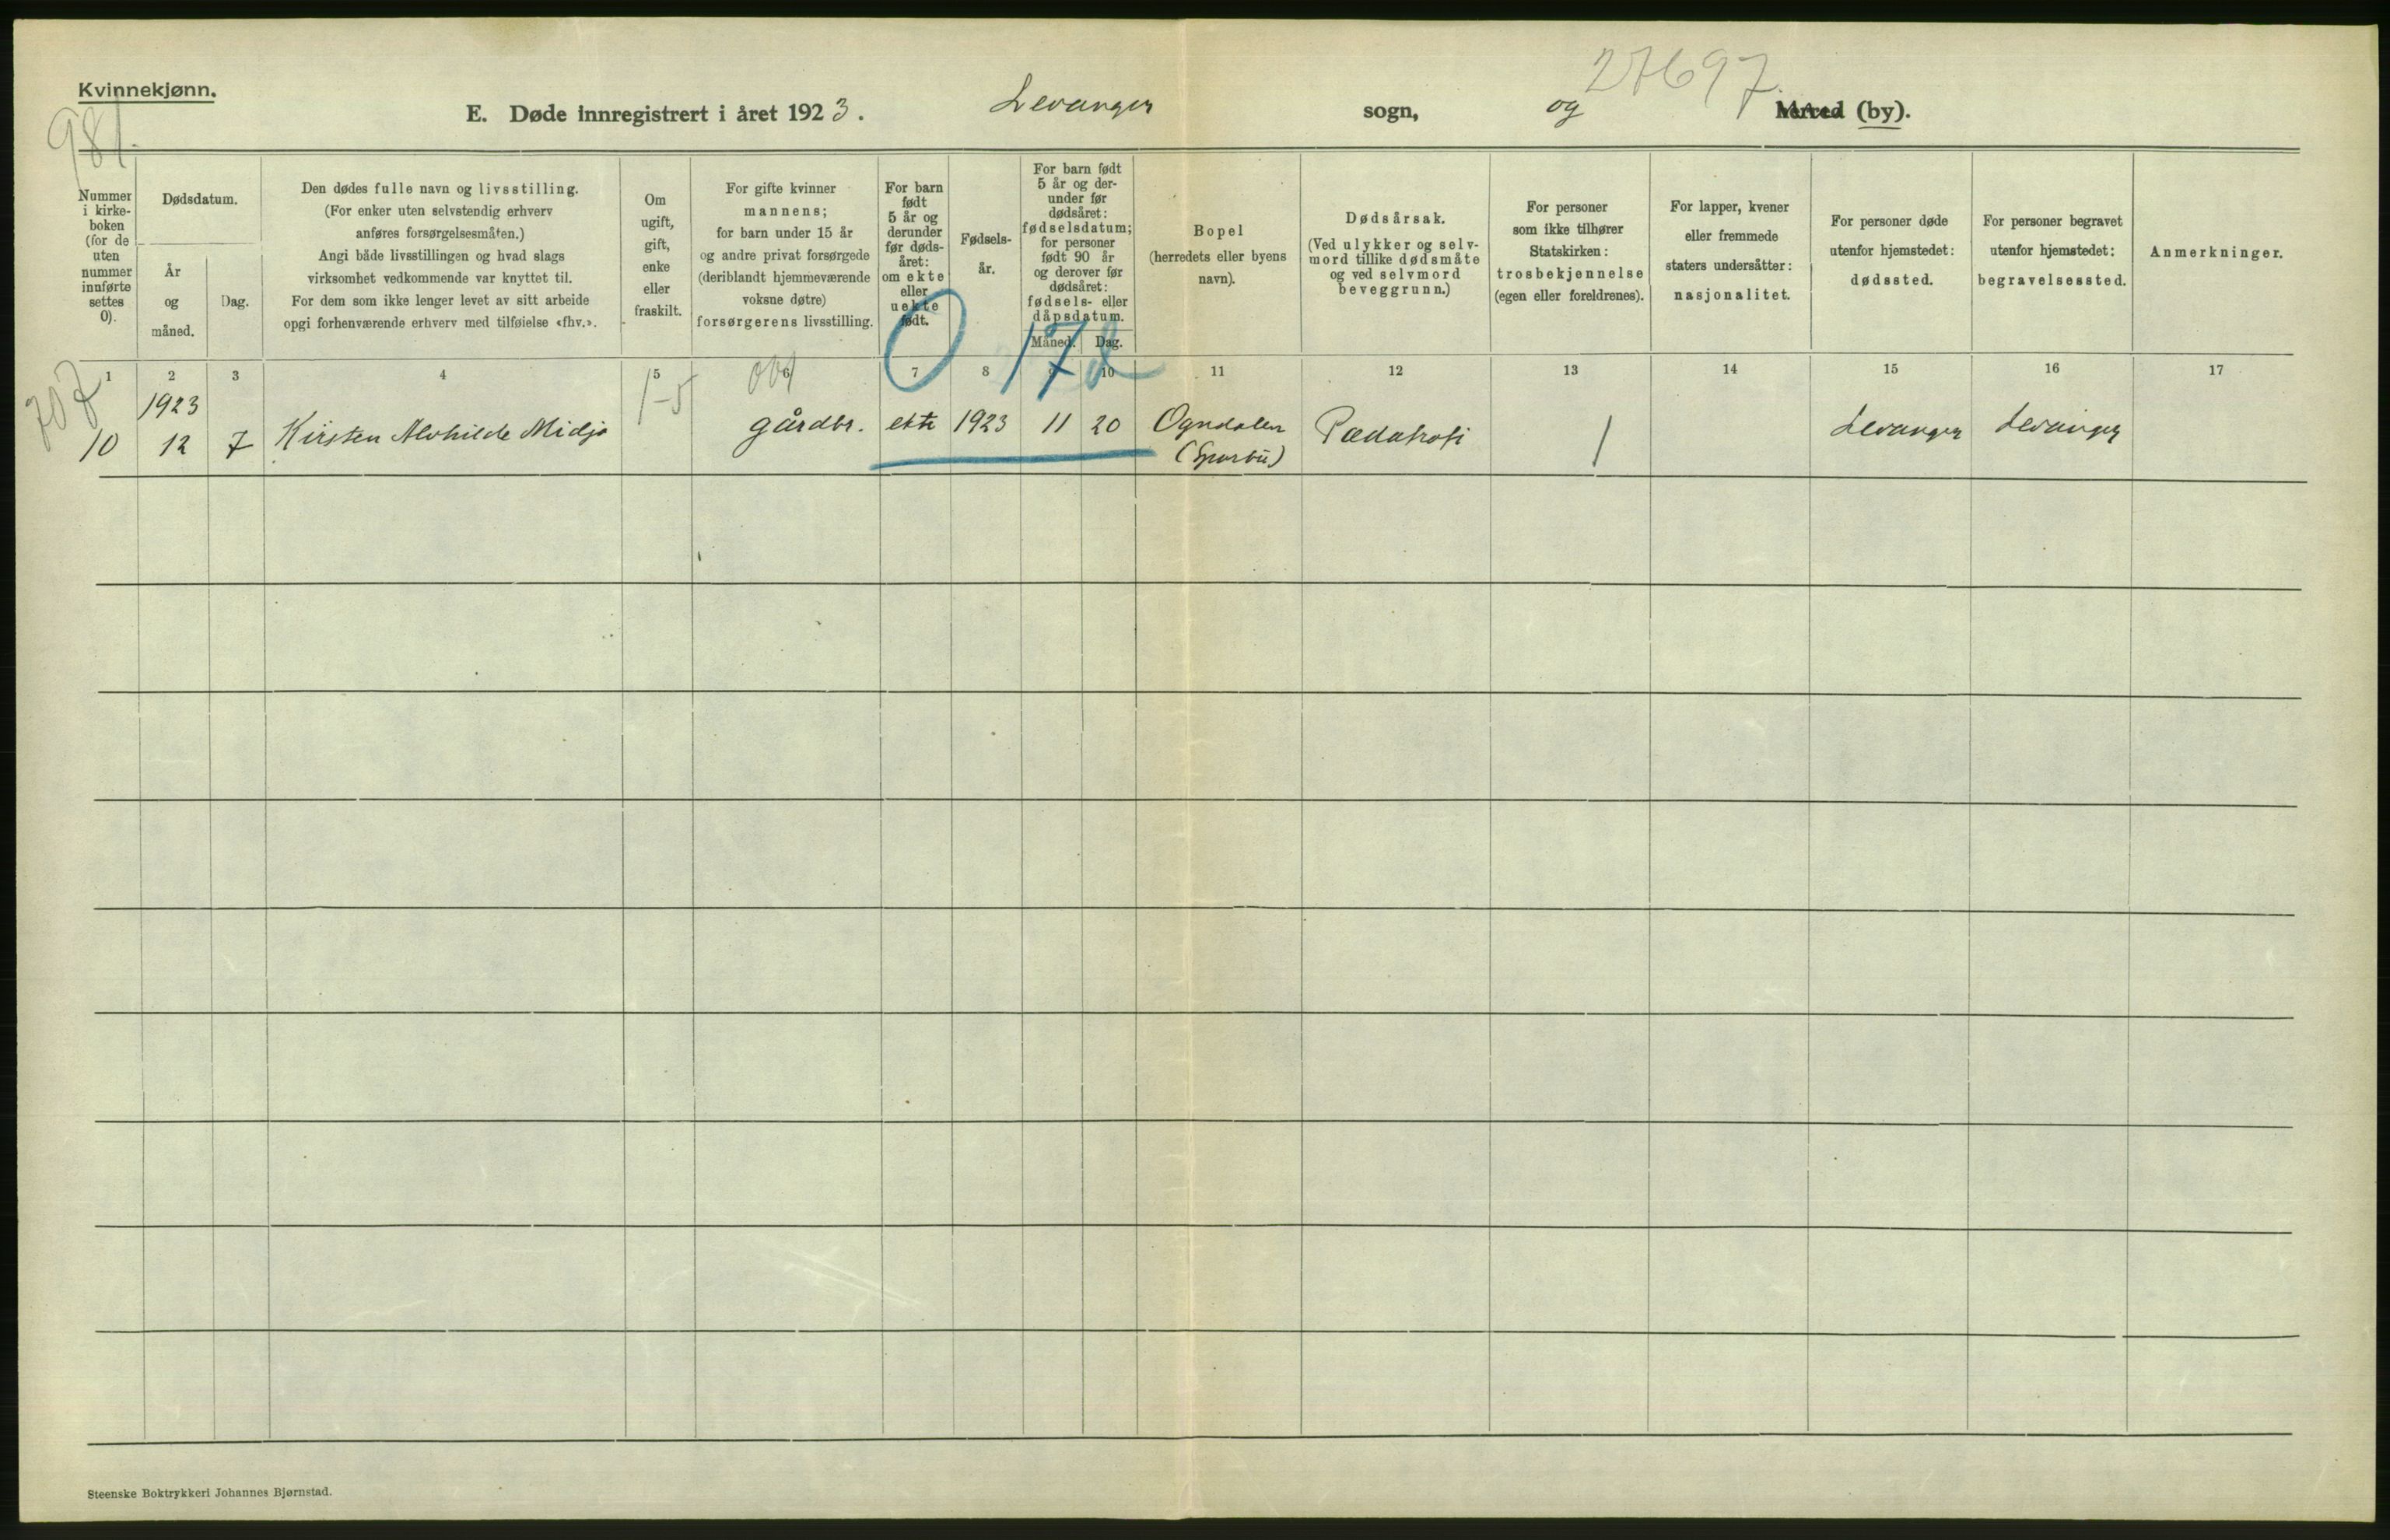 Kvinnekjønn.
27697.
981.
E. Døde innregistrert i året 1923. Levanger sogn, og herred (by).
Nummer i kirke- boken (for de uten nummer innførte settes 0).
Dødsdatum.
År og måned.
Dag.
Den dødes fulle navn og livsstilling.
(For enker uten selvstendig erhverv
anføres forsørgelsesmåten.)
Angi både livsstillingen og hvad slags
virksomhet vedkommende var knyttet til.
For dem som ikke lenger levet av sitt arbeide
opgi forhenværende erhverv med tilføielse «fhv.».
Om ugift, gift, enke eller fraskilt.
For gifte kvinner
mannens;
for barn under 15 år
og andre privat forsørgede
(deriblandt hjemmeværende
voksne døtre)
forsørgerens livsstilling.
For barn født 5 år og derunder før døds- året: om ekte eller uekte født.
Fødsels- år.
For barn født
5 år og der-
under før
dødsåret:
fødselsdatum;
for personer
født 90 år
og derover før
dødsåret:
fødsels- eller
dåpsdatum.
Måned. Dag.
Bopel
(herredets eller byens
navn).
Dødsårsak.
(Ved ulykker og selv-
mord tillike dødsmåte
og ved selvmord
beveggrunn.)
For personer
som ikke tilhører
Statskirken:
trosbekjennelse
(egen eller foreldrenes).
For lapper, kvener
eller fremmede
staters undersåtter:
nasjonalitet.
For personer døde
utenfor hjemstedet:
dødssted.
For personer begravet
utenfor hjemstedet:
begravelsessted.
Anmerkninger.
0 17d
1 2 3 4 5 6 7 8 9 10 11 12 13 14 15 16 17
707
1-5
001
1923
10 12 7 Kirsten Alvhilde Midjo gårdbr. ekte 1923 11 20 Ogndalen Pædatrofi 1 Levanger Levanger
(Sparbu)
Steenske Boktrykkeri Johannes Bjørnstad.